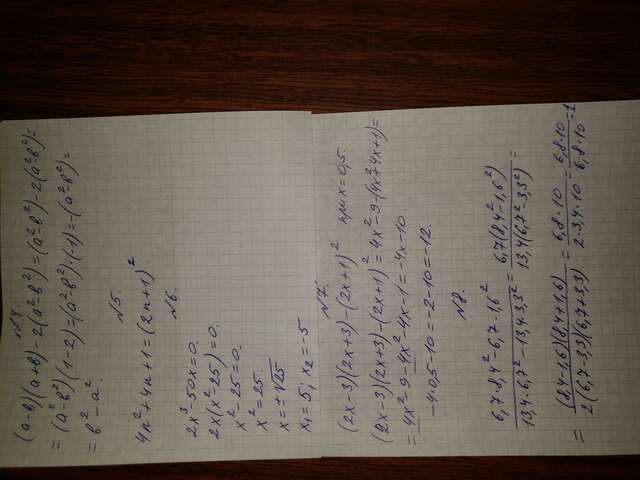 №4.
(a-b)(a+b)-2(a²-b²)=(a²-b²)-2(a²-b²)=
=(a²-b²)(1-2)=(a²-b²)·(-1)=-(a²-b²)=
=b²-a²
№5.
4n²+4n+1=(2n+1)².
№6.
2x³-50x=0.
2x(x²-25)=0.
x²-25=0.
x²=25.
x=±√25
x₁=5; x₂=-5.
№7.
(2x-3)(2x+3)-(2x+1)² при x=0,5.
(2x-3)(2x+3)-(2x+1)²=4x²-9-(4x²+4x+1)=
=4x²-9-4x²-4x-1=-4x-10.
-4·0,5-10=-2-10=-12.
№8.
(6,7·8,4²-6,7·1,6²)/(13,4·6,7²-13,4·3,3²)=(6,7(8,4²-1,6²))/(13,4(6,7²-3,3²))=
=((8,4-1,6)(8,4+1,6))/(2(6,7-3,3)(6,7+3,3))=(6,8·10)/(2·3,4·10)=(6,8·10)/(6,8·10)=1